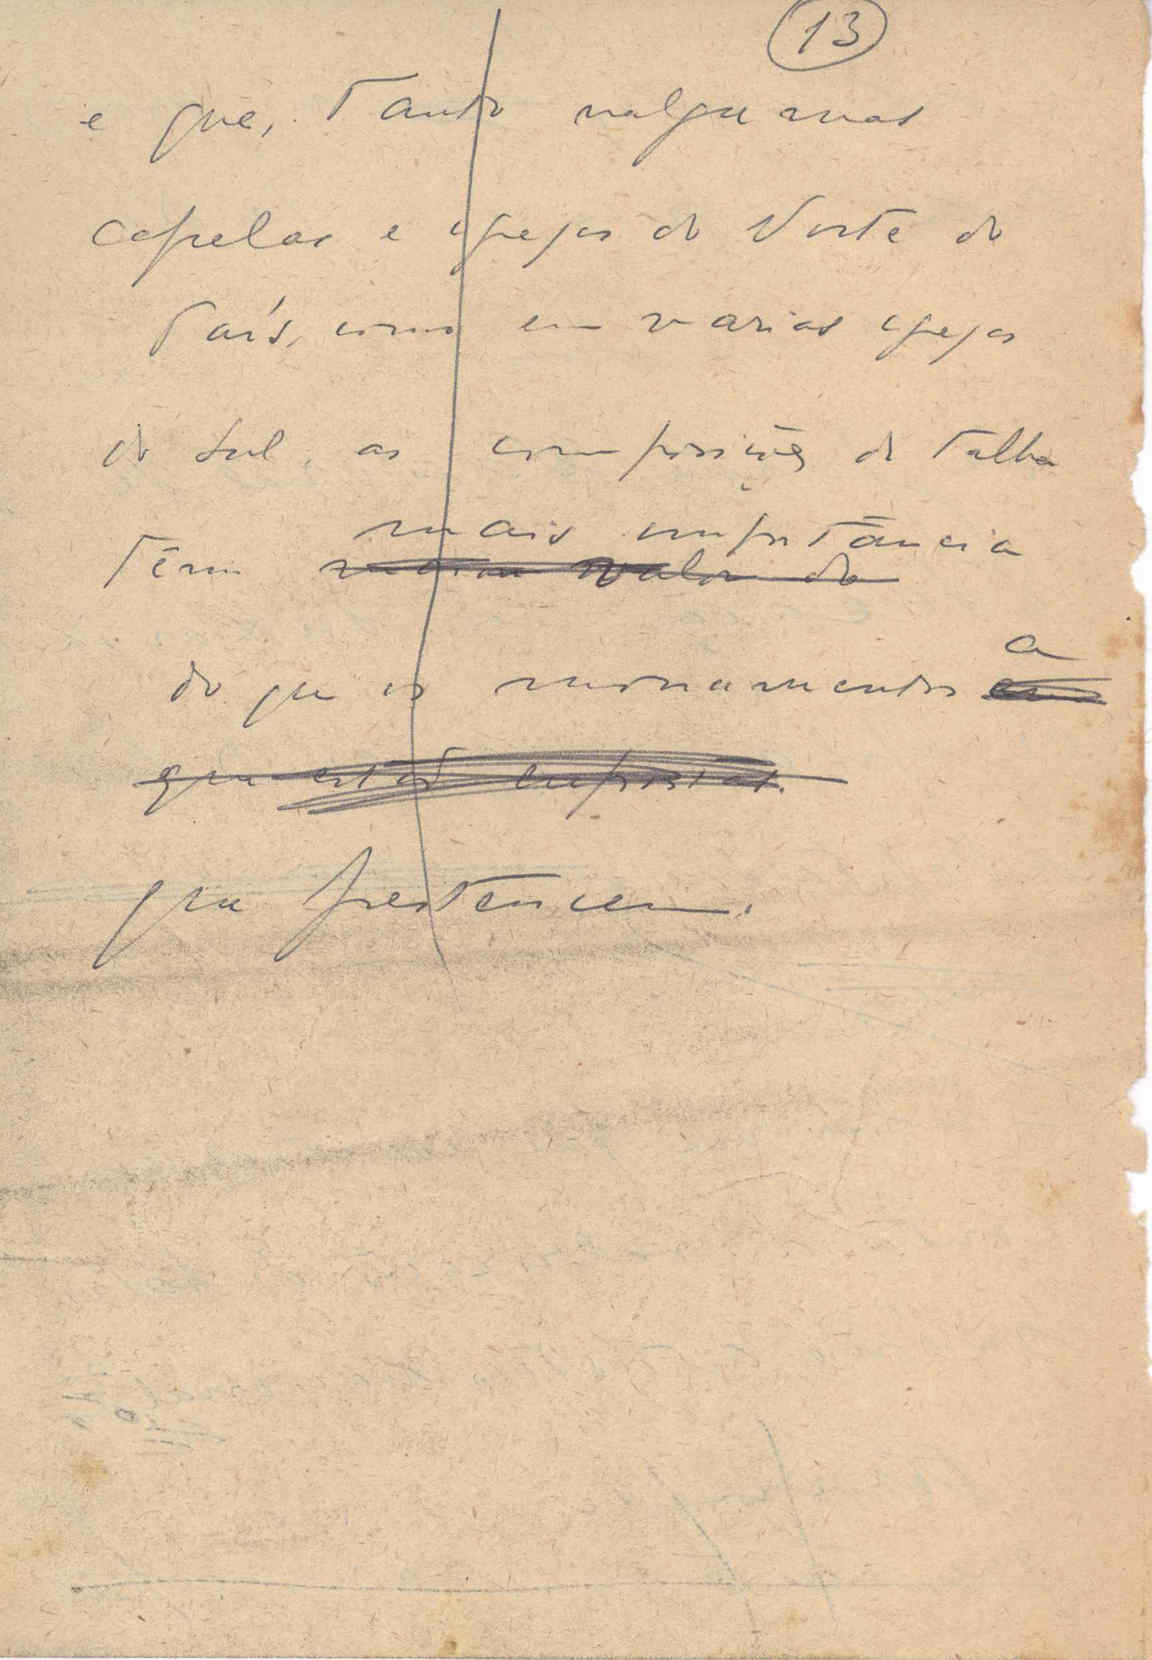 13
e que, tanto nalgumas
capelas e igrejas do Norte do
País, como em varias igrejas
do Sul, as composições de talha
mais importância
têm maior valor do
do que os monumentos a
que estão expostas.
que pertencem.